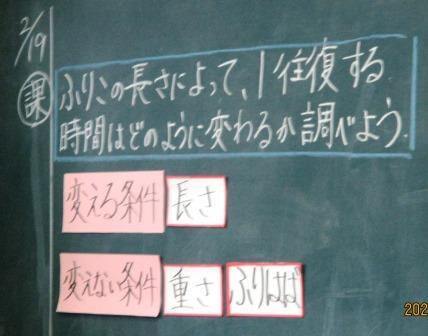 2/9
課 ふりこの長さによって、1往復する
時間はどのように変わるか調べよう.
変える条件 長さ
変えない条件 重さ ふりはば
202